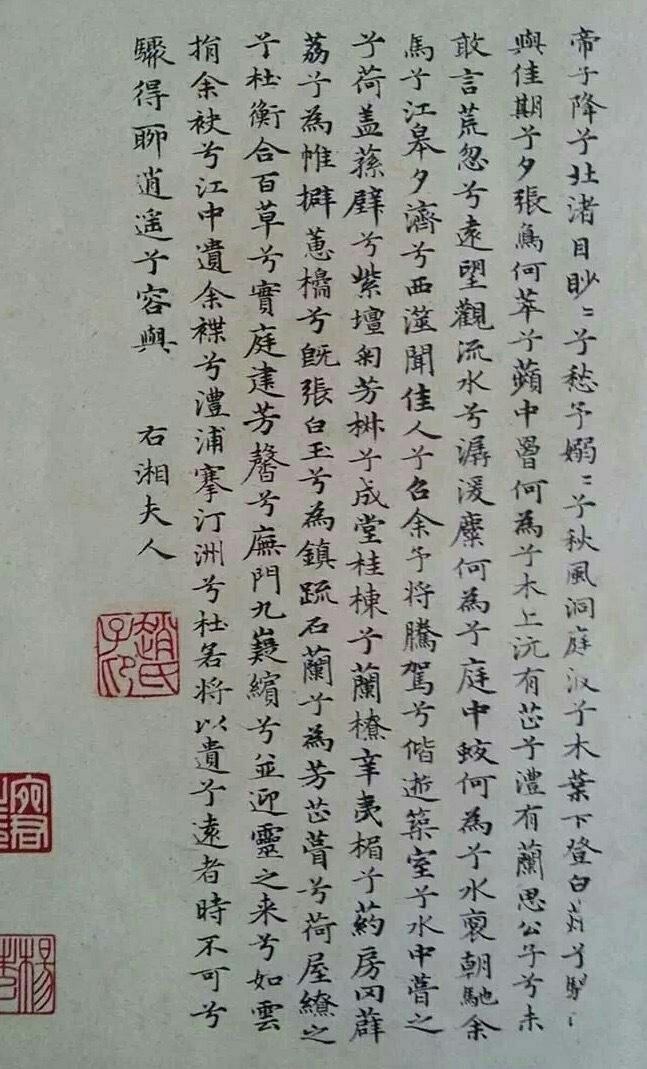 帝子降兮北渚目眇〻兮愁予嫋〻兮秋風洞庭波兮木葉下登白薠兮騁
與佳期兮夕張鳥何萃兮蘋中罾何為兮木上沅有芷兮澧有蘭思公子兮未
敢言荒忽兮遠望觀流水兮潺湲麋何為兮庭中蛟何為兮水裔朝馳余
馬兮江皋夕濟兮西澨聞佳人兮召余予将騰駕兮偕逝築室兮水中葺之
兮荷盖蓀壁兮紫壇匊芳椒兮成堂桂棟兮蘭橑辛夷楣兮葯房罔薜
荔兮為帷擗蕙櫋兮既張白玉兮為鎮疏石蘭兮為芳芷葺兮荷屋繚之
兮杜衡合百草兮實庭建芳馨兮廡門九嶷繽兮並迎靈之来兮如雲
捐余袂兮江中遺余褋兮澧浦搴汀洲兮杜若将以遺兮遠者時不可兮
驟得聊逍遥兮容與 右湘夫人
趙氏子印